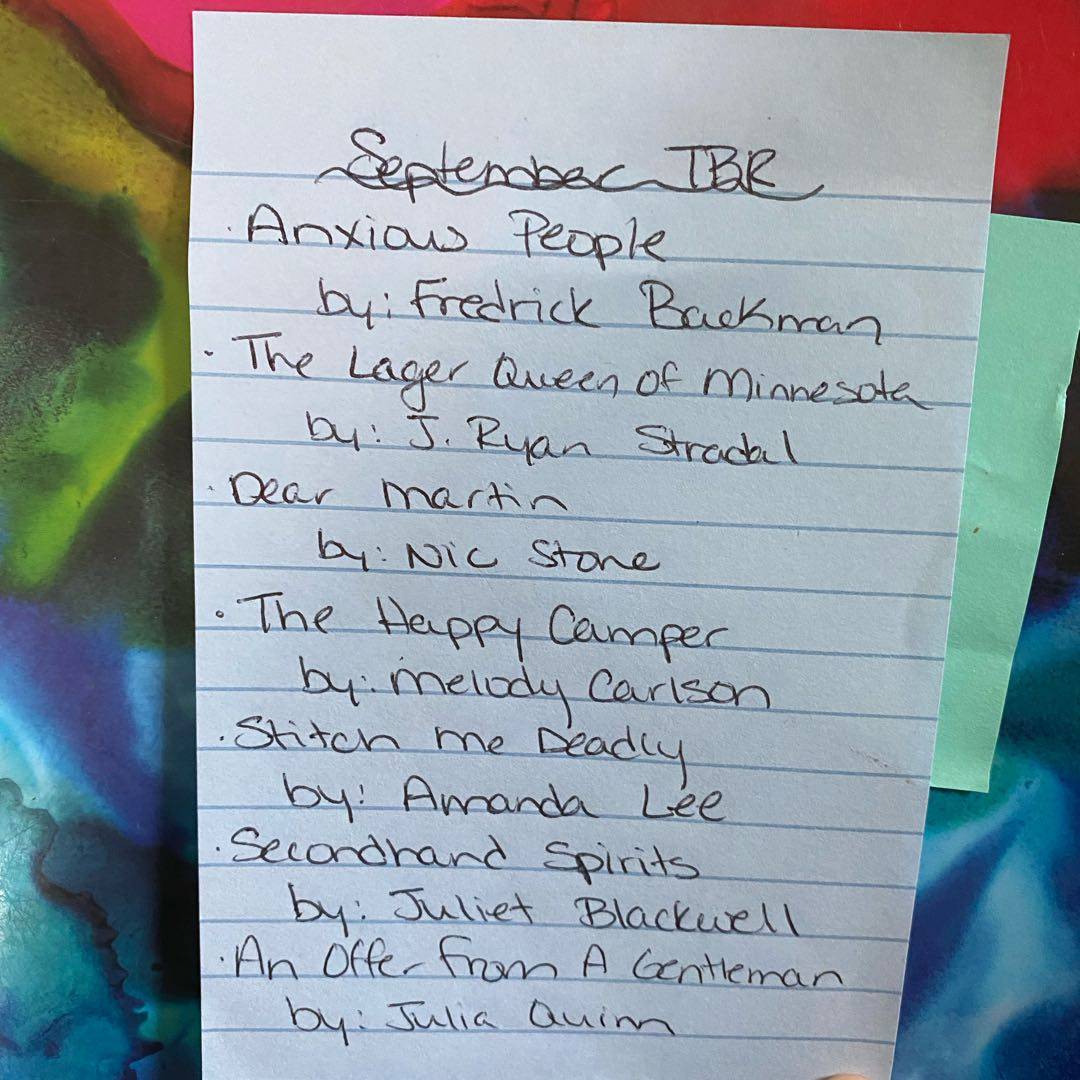 September TBR
· Anxious People
by: Fredrick Backman
· The Lager Queen of Minnesota
by: J. Ryan Stradal
· Dear Martin
by: Nic Stone
· The Happy Camper
by: Melody Carlson
· Stitch Me Deadly
by: Amanda Lee
· Secondhand Spirits
by: Juliet Blackwell
· An Offer From A Gentleman
by: Julia Quinn